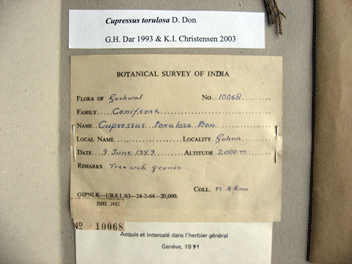 Cupressus torulosa D. Don
G.H. Dar 1993 & K.I. Christensen 2003
BOTANICAL SURVEY OF INDIA
FLORA OF Garhwal No. 10068
FAMILY Coniferae
NAME Cupressus torulosa Don
LOCAL NAME LOCALITY Gohna
DATE 9 June 1959 ALTITUDE 2000m
REMARKS Tree with cones
COLL. M. A. Rau
GIPNLK—1/B.S.I./63—24-2-64—20,000.
No 10068
Acquis et intercalé dans l'herbier général
Genève, 1991